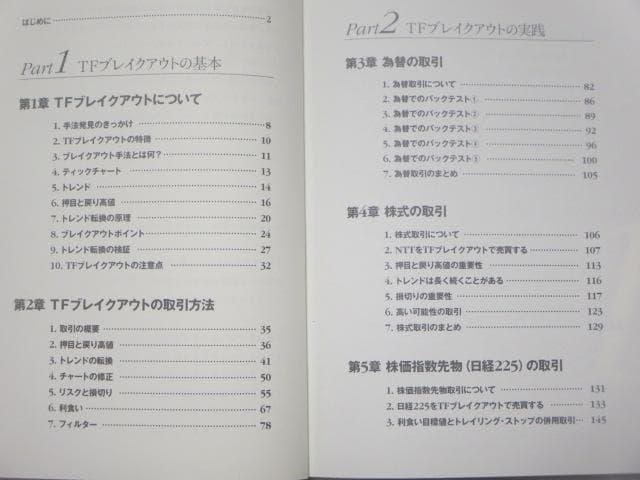 はじめに 2
Part1 TFブレイクアウトの基本
第1章 TFブレイクアウトについて
1. 手法発見のきっかけ 8
2. TFブレイクアウトの特徴 10
3. ブレイクアウト手法とは何? 11
4. ティックチャート 13
5. トレンド 14
6. 押目と戻り高値 16
7. トレンド転換の原理 20
8. ブレイクアウトポイント 24
9. トレンド転換の検証 27
10. TFブレイクアウトの注意点 32
第2章 TFブレイクアウトの取引方法
1. 取引の概要 35
2. 押目と戻り高値 36
3. トレンドの転換 41
4. チャートの修正 50
5. リスクと損切り 55
6. 利食い 67
7. フィルター 78
Part2 TFブレイクアウトの実践
第3章 為替の取引
1. 為替取引について 82
2. 為替でのバックテスト① 86
3. 為替でのバックテスト② 89
4. 為替でのバックテスト③ 92
5. 為替でのバックテスト④ 96
6. 為替でのバックテスト⑤ 100
7. 為替取引のまとめ 105
第4章 株式の取引
1. 株式取引について 106
2. NTTをTFブレイクアウトで売買する 107
3. 押目と戻り高値の重要性 113
4. トレンドは長く続くことがある 116
5. 損切りの重要性 117
6. 高い可能性の取引 123
7. 株式取引のまとめ 129
第5章 株価指数先物(日経225)の取引
1. 株価指数先物取引について 131
2. 日経225をTFブレイクアウトで売買する 133
3. 利食い目標値とトレイリング・ストップの併用取引 145